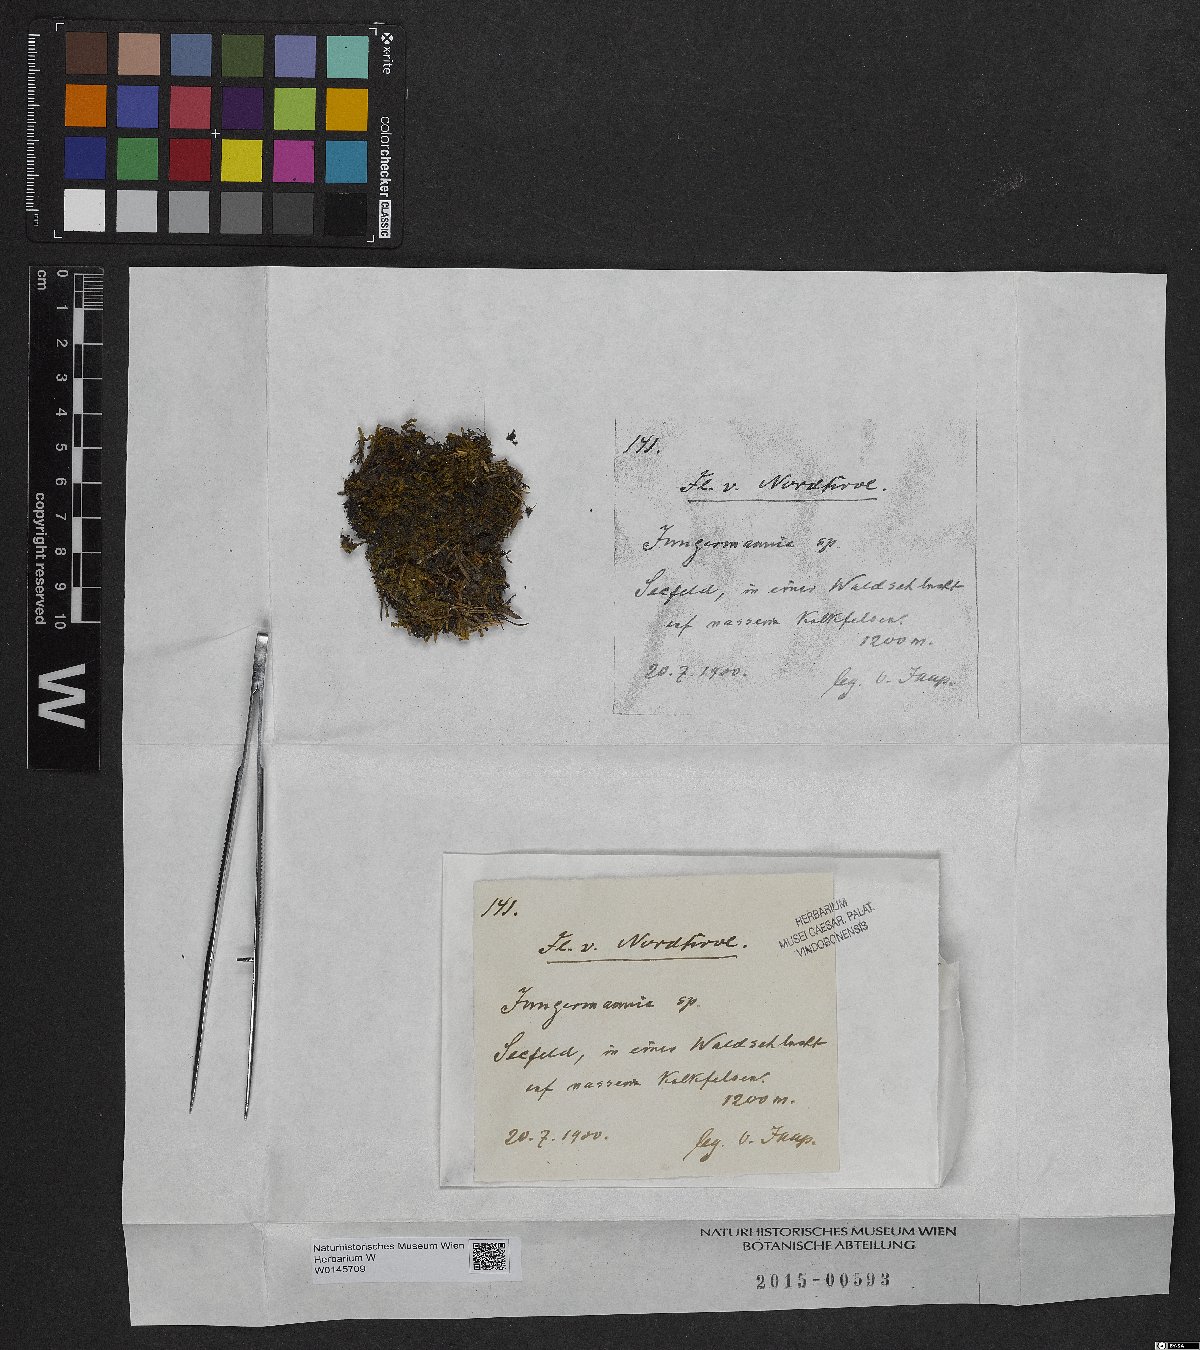 x-rite
colorchecker
CLASSIC
0 1 2 3 4 5 6 7 8 9 10
cm
copyright reserved
W
141.
Fl. v. Nordtirol.
Jungermannia sp.
Seefeld, in einer Waldschlucht
auf nassem Kalkfelsen.
1200 m.
20. 7. 1900.
leg. O. Jaap.
141.
Fl. v. Nordtirol.
Jungermannia sp.
Seefeld, in einer Waldschlucht
auf nassem Kalkfelsen.
1200 m.
20. 7. 1900.
leg. O. Jaap.
HERBARIUM
MUSEI CAESAR. PALAT.
VINDOBONENSIS
Naturhistorisches Museum Wien
Herbarium W
W0145709
NATURHISTORISCHES MUSEUM WIEN
BOTANISCHE ABTEILUNG
2015-00593
BY-SA